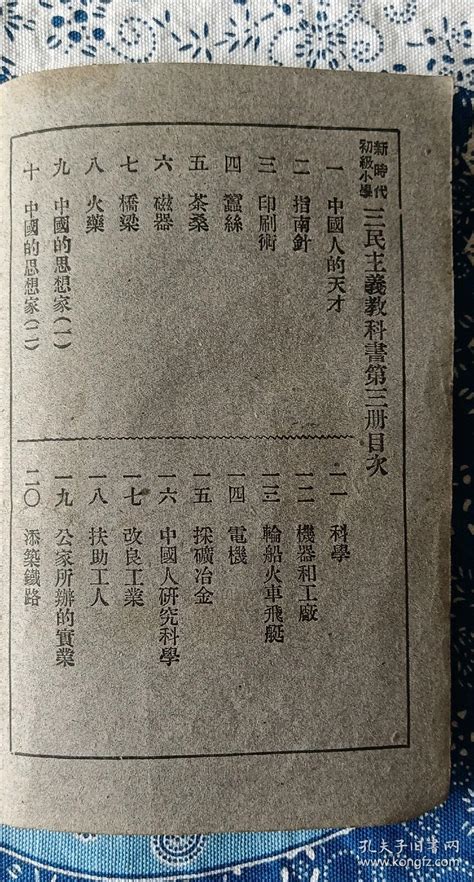 新時代
初級小學
三民主義教科書第三册目次
一 中國人的天才
二 指南針
三 印刷術
四 蠶絲
五 茶桑
六 磁器
七 橋梁
八 火藥
九 中國的思想家(一)
十 中國的思想家(二)
一一 科學
一二 機器和工廠
一三 輪船火車飛艇
一四 電機
一五 採礦冶金
一六 中國人研究科學
一七 改良工業
一八 扶助工人
一九 公家所辦的實業
二〇 添築鐵路
孔夫子旧书网
www.kongfz.com